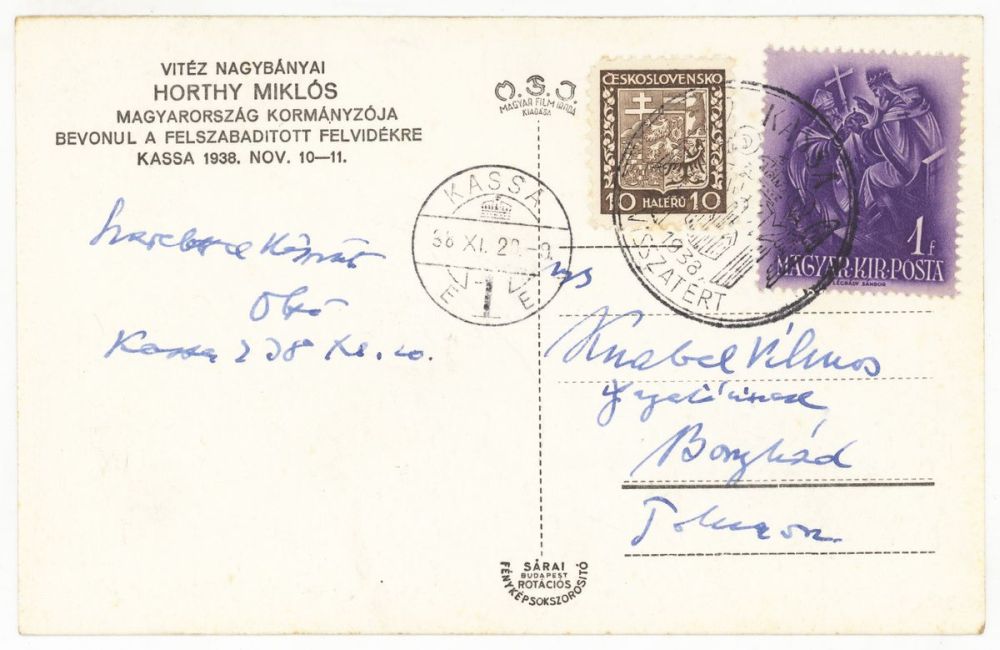 VITÉZ NAGYBÁNYAI
HORTHY MIKLÓS
MAGYARORSZÁG KORMÁNYZÓJA
BEVONUL A FELSZABADITOTT FELVIDÉKRE
KASSA 1938. NOV. 10—11.
MAGYAR FILM IRODA
KIADÁSA
ČESKOSLOVENSKO
10 HALÉŘŮ 10
1 f
MAGYAR·KIR·POSTA
LÉGRÁDY SÁNDOR
KASSA
VISSZATÉRT
1938.
KASSA
38 XI. 20
Kassa 938 XI. 20.
Knabel Vilmos
Bonyhád
Tolna
SÁRAI
BUDAPEST
ROTÁCIÓS
FÉNYKÉPSOKSZOROSITÓ